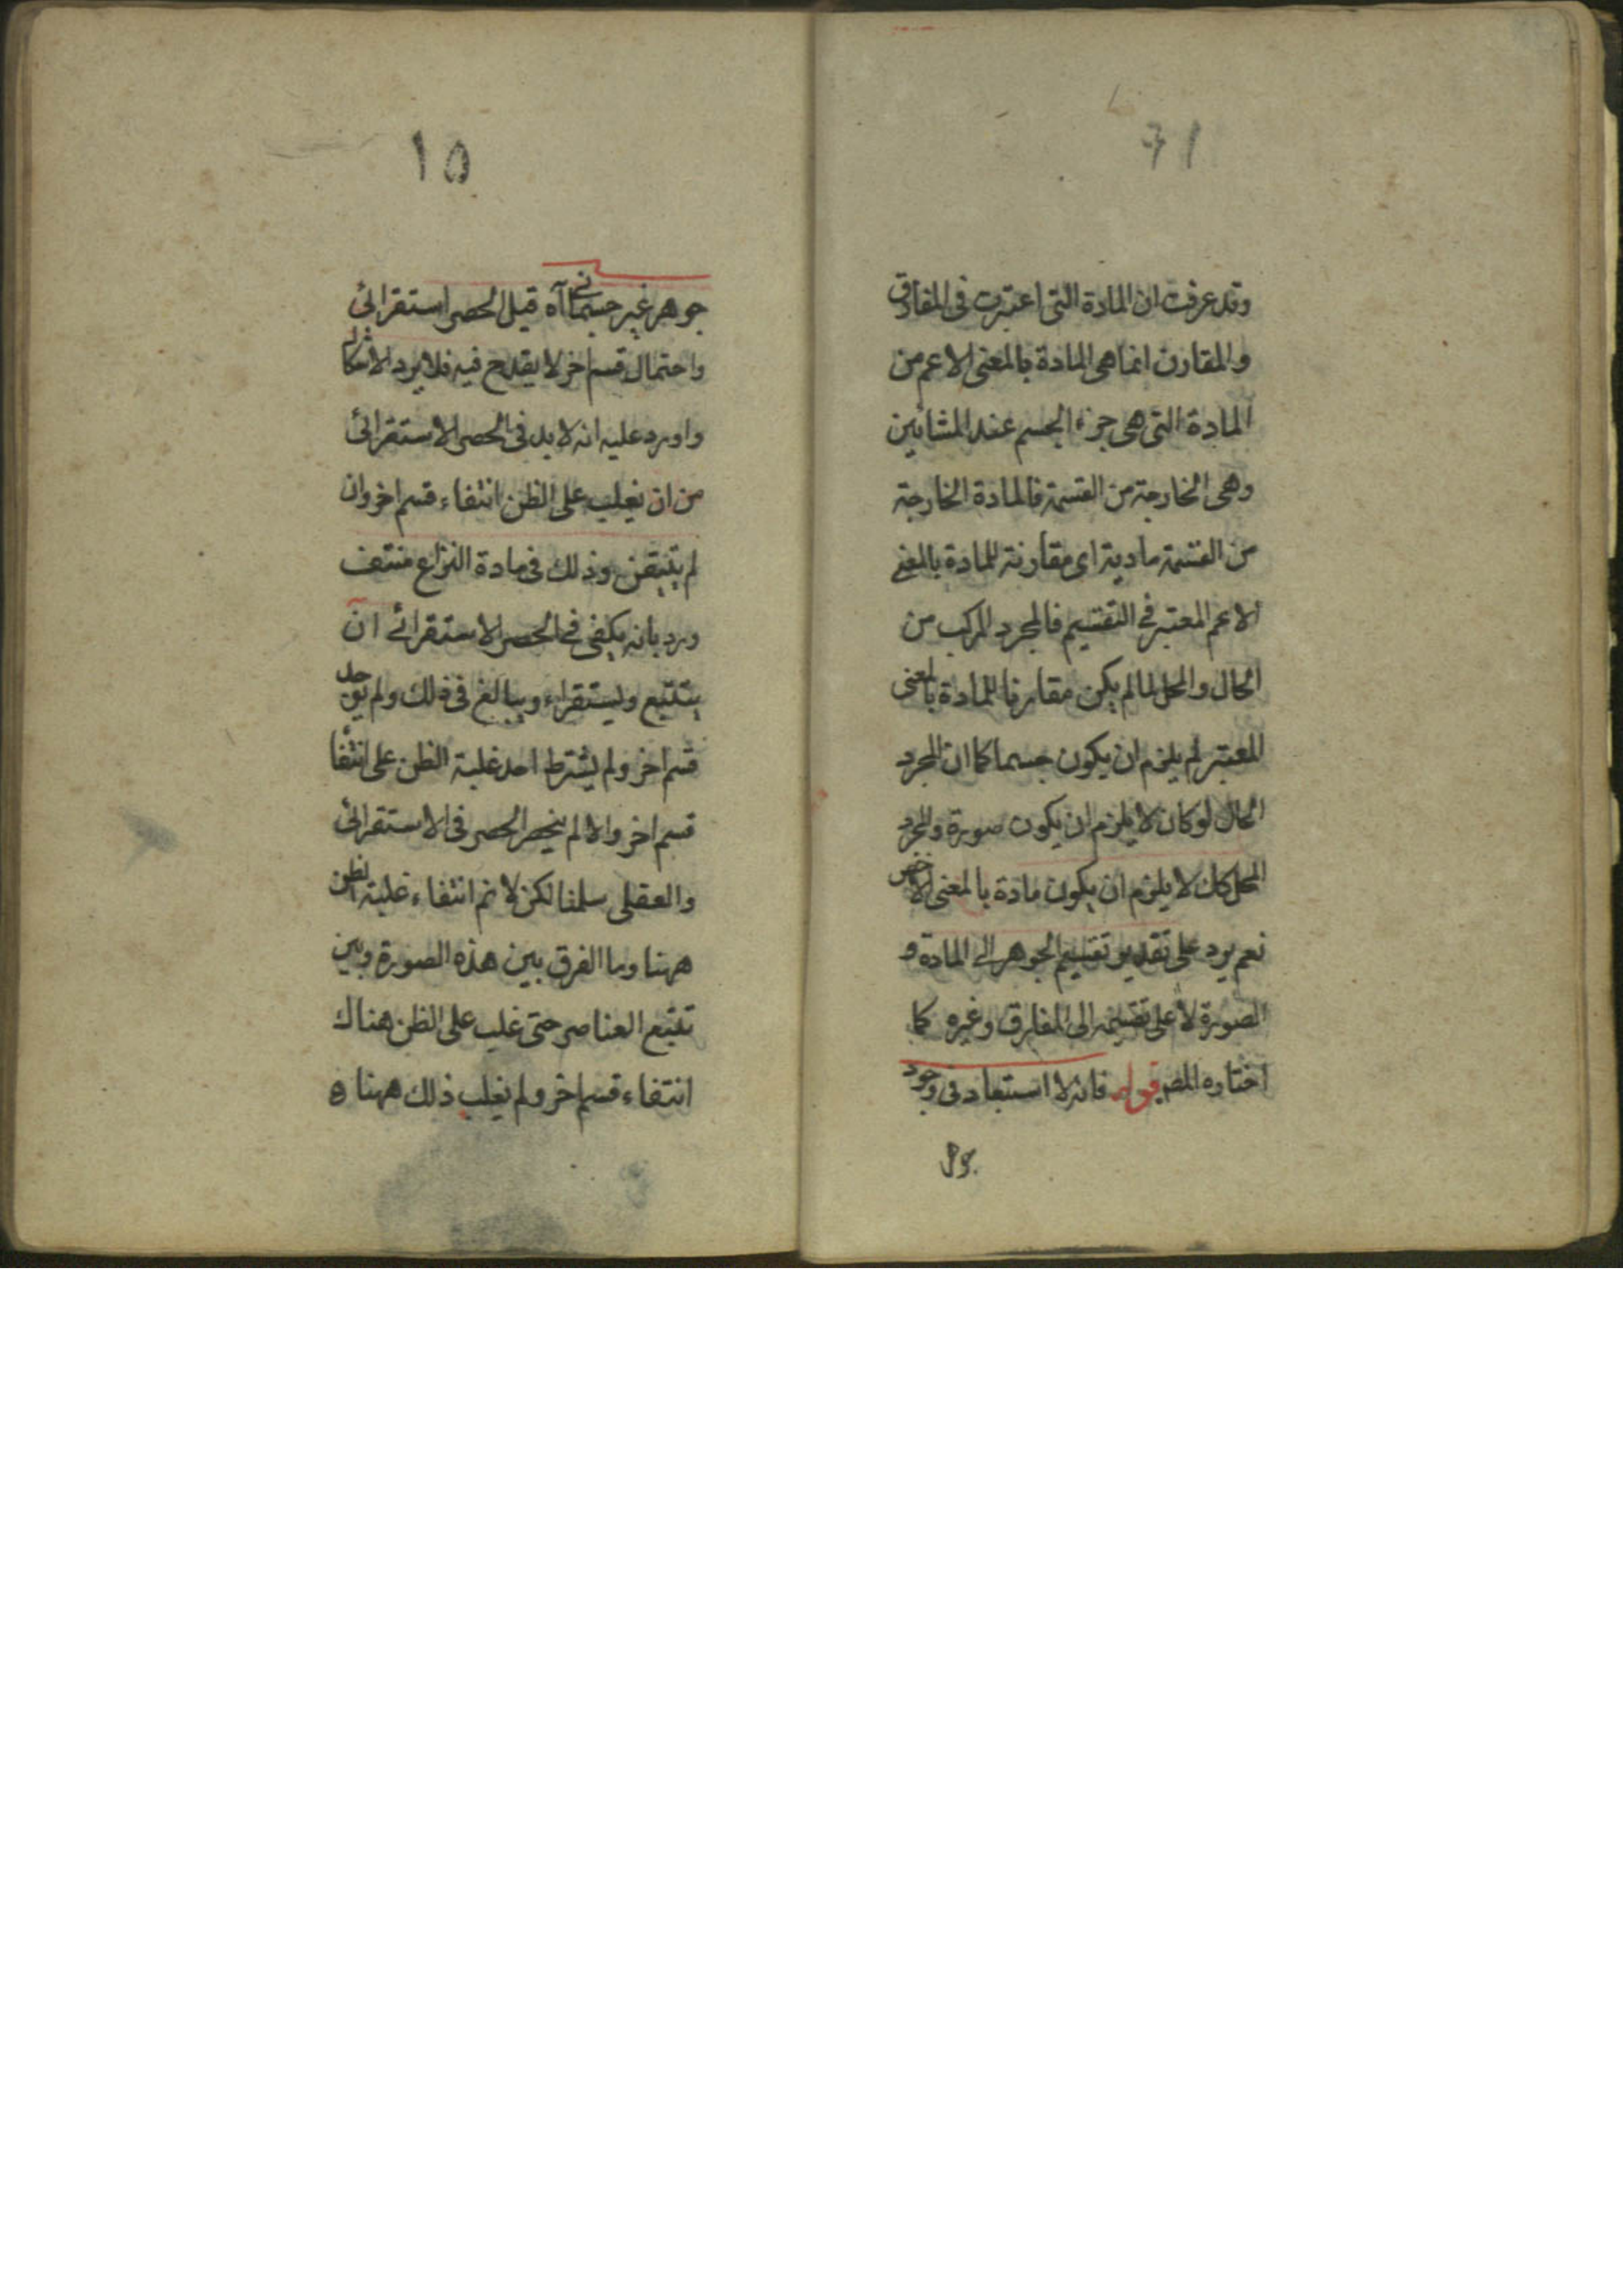 وقد عرفت ان المادة التى اعتبرت فى المفارق
والمقارن انما هى المادة بالمعنى الاعم من
المادة التى هى جزء الجسم عند المشائين
وهى الخارجة من القسمة فالمادة الخارجة
من القسمة مادية اى مقارنة للمادة بالمعنى
الاعم المعتبر فى التقسيم فالمجرد المركب من
الحال والمحل لما لم يكن مقارنا للمادة بالمعنى
المعتبر لم يلزم ان يكون جسما كما ان المجرد
الحال لو كان لا يلزم ان يكون صورة والمجرد
المحل كك لا يلزم ان يكون مادة بالمعنى الاخص
نعم يرد على تقدير تقسيم الجوهر الى المادة و
الصورة لا على تقسيمه الى المفارق وغيره كما
اختاره المصـ قوله فانه لا استبعاد فى وجود
١٥
جوهر غير جسمانى آه قيل الحصر استقرائى
واحتمال قسم اخر لا يقدح فيه فلا يرد الاشكال
واورد عليه انه لا بد فى الحصر الاستقرائى
من ان يغلب على الظن انتفاء قسم اخر وان
لم يتيقن وذلك فى مادة النزاع منتف
ورد بانه يكفى فى الحصر الاستقرائى ان
يتتبع ويستقراء ويبالغ فى ذلك ولم يوجد
قسم اخر ولم يشترط احد غلبة الظن على انتفا
قسم اخر والا لم ينحصر الحصر فى الاستقرائى
والعقلى سلمنا لكن لا نم انتفاء غلبة الظن
ههنا وما الفرق بين هذه الصورة وبين
تتبع العناصر حتى غلب على الظن هناك
انتفاء قسم اخر ولم يغلب ذلك ههنا ه